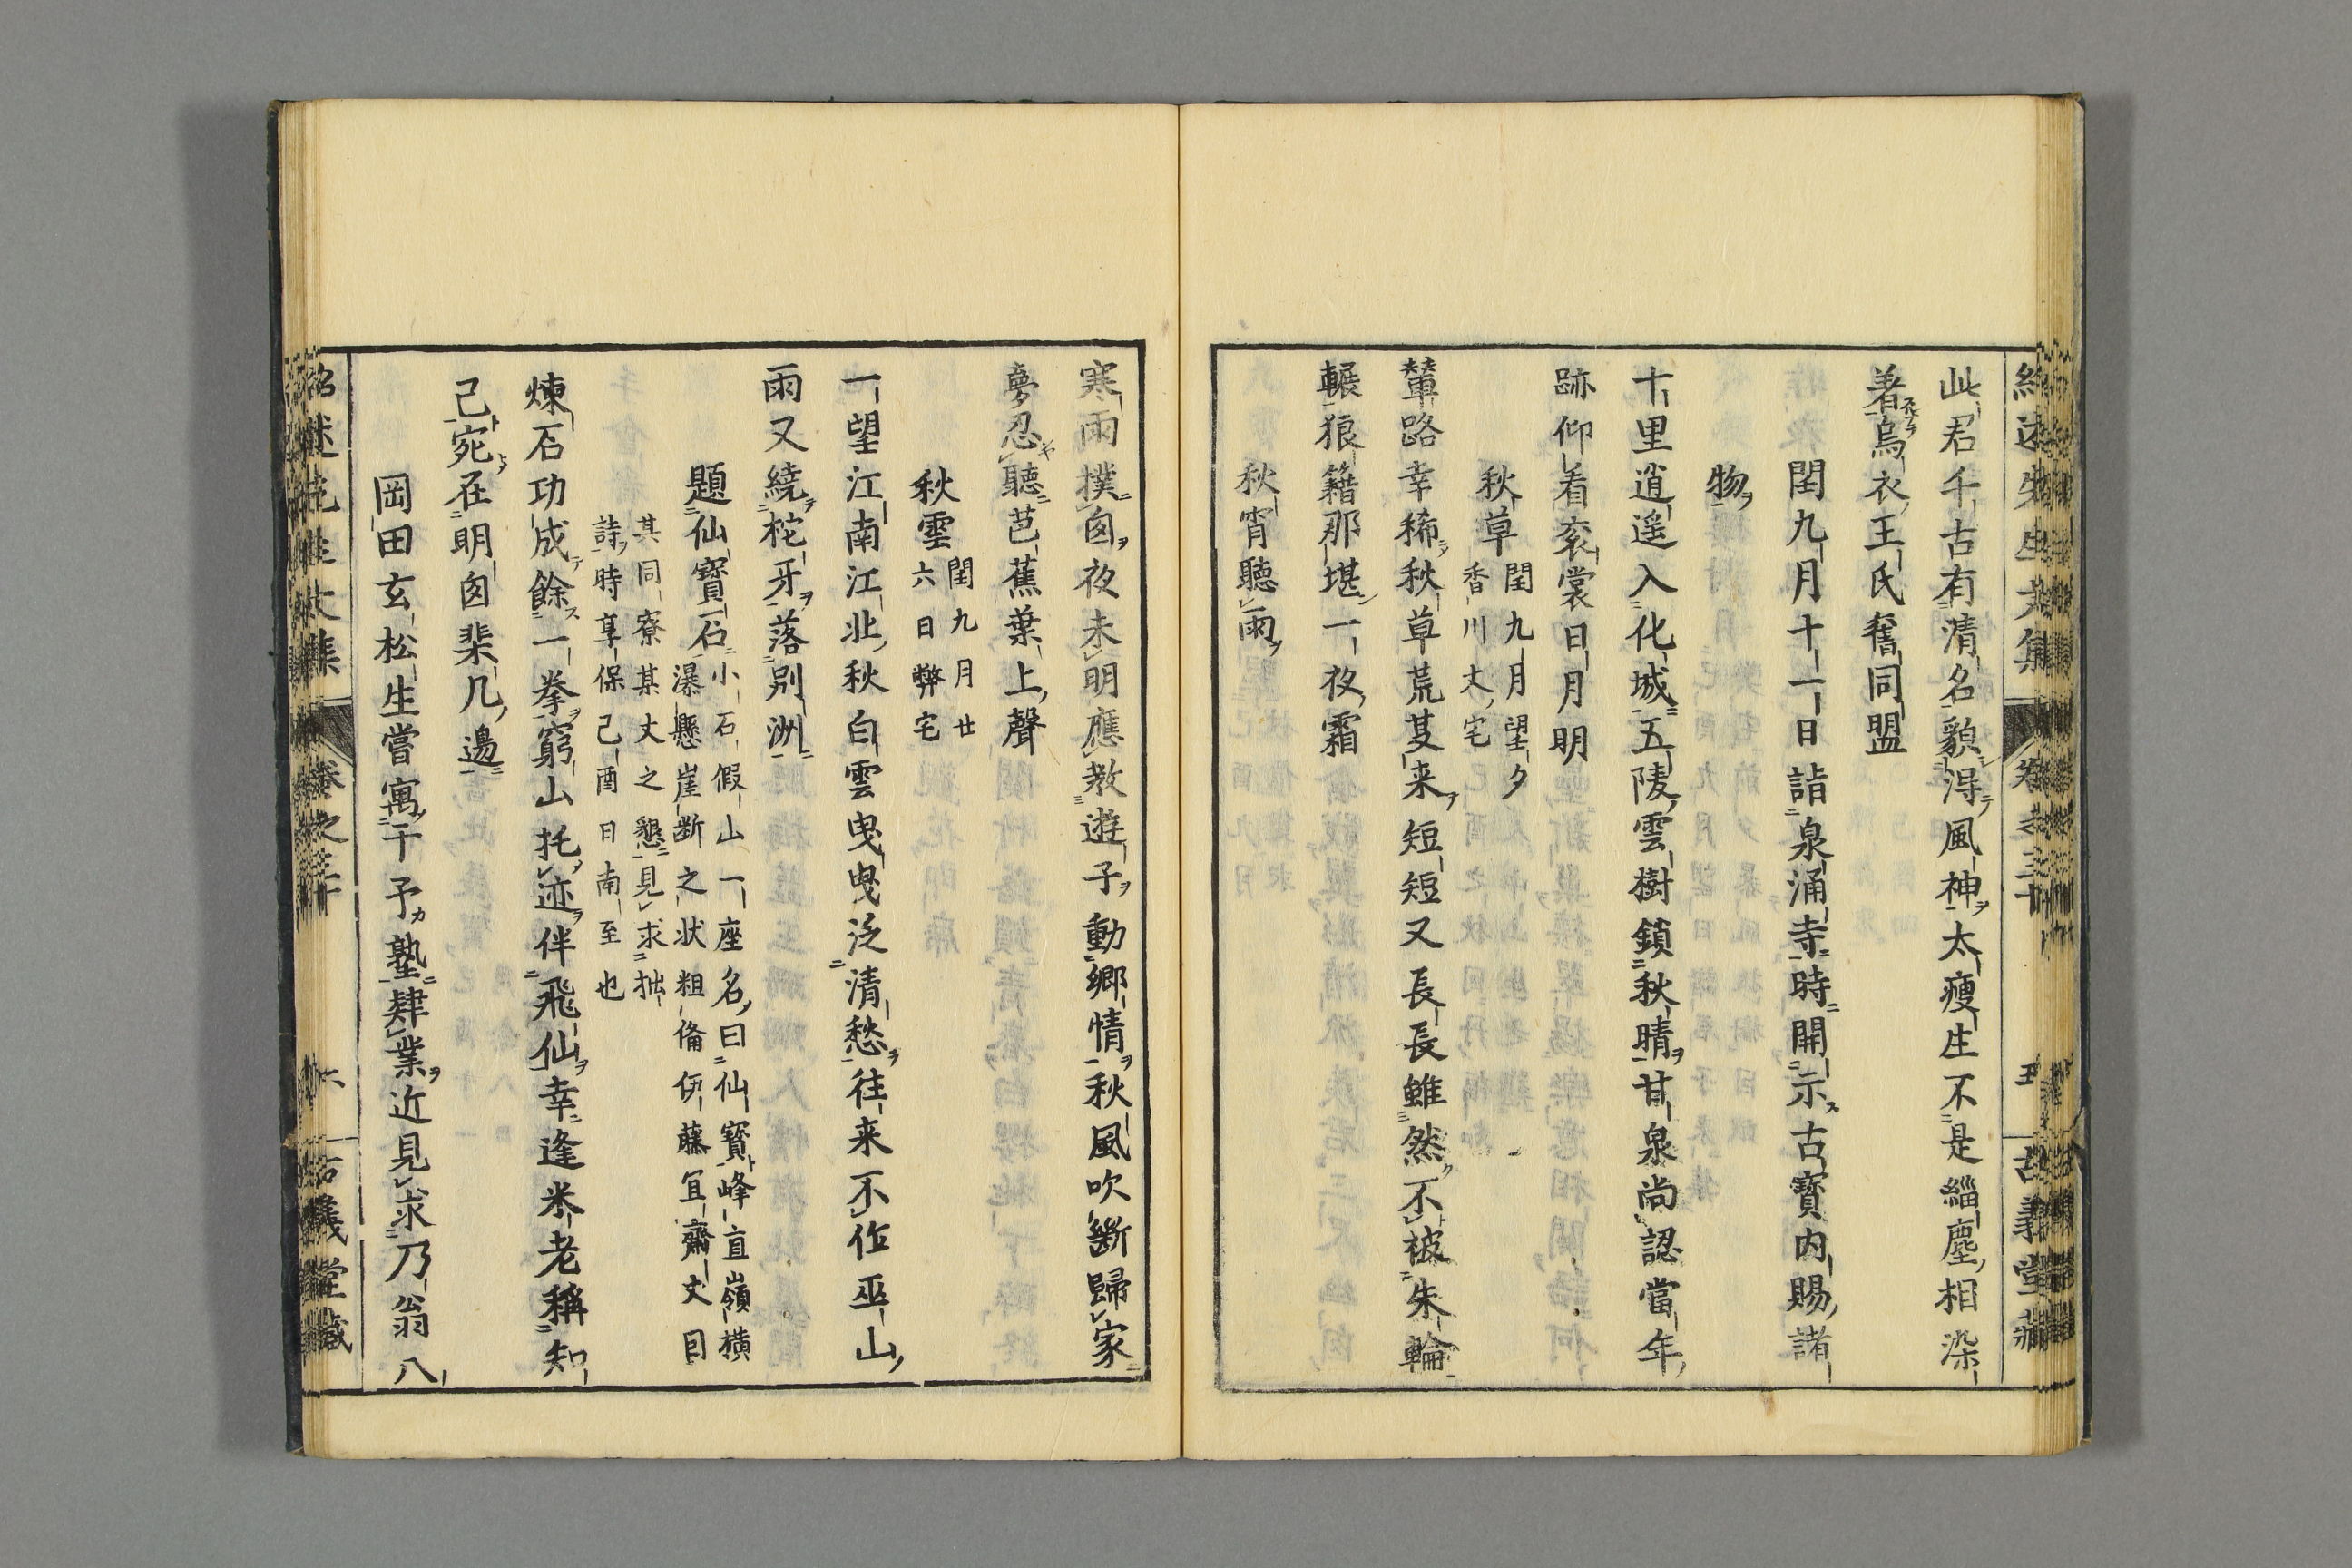 紹述先生文集 卷之三十 五 古義堂藏
此君千古有清名貌得風神太瘦生不是緇塵相染
著烏衣王氏舊同盟
閏九月十一日詣泉涌寺時開示古寶内賜諸
物
十里逍遥入化城五陵雲樹鎖秋晴甘泉尚認當年
跡仰看衮裳日月明
秋草
閏九月望夕
香川丈宅
輦路幸稀秋草荒芟来短短又長長雖然不被朱輪
輾狼籍那堪一夜霜
秋宵聽雨
寒雨撲囱夜未明應教遊子動鄉情秋風吹斷歸家
夢忍聽芭蕉葉上聲
秋雲
閏九月廿
六日弊宅
一望江南江北秋白雲曳曳泛清愁往来不作巫山
雨又繞柁牙落別洲
題仙寶石
小石假山一座名曰仙寶峰直嶺横
瀑懸崖断之状粗俻伊藤宜齋丈目
其同寮某丈之懇見求拙
詩時享保己酉日南至也
煉石功成餘一拳窮山托迹伴飛仙幸逢米老稱知
己宛在明囱棐几邊
岡田玄松生嘗寓于予塾肄業近見求乃翁八
紹述先生文集 卷之三十 六 古義堂藏